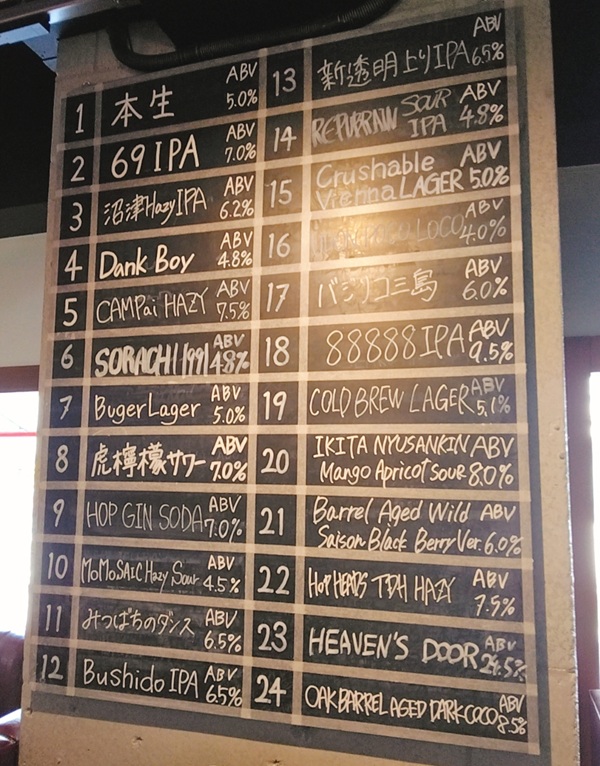 1 本生 ABV 5.0%
2 69 IPA ABV 7.0%
3 沼津Hazy IPA ABV 6.2%
4 Dank Boy ABV 4.8%
5 CAMPai HAZY ABV 7.5%
6 SORACHI 1991 ABV 4.8%
7 BugerLager ABV 5.0%
8 虎檸檬サワー ABV 7.0%
9 HOP GIN SODA ABV 7.0%
10 MoMoSAIC Hazy Sour ABV 4.5%
11 みつばちのダンス ABV 6.5%
12 Bushido IPA ABV 6.5%
13 新透明上り IPA ABV 6.5%
14 SOUR IPA ABV 4.8%
15 Crushable
Vienna LAGER ABV 5.0%
16 LOCO ABV 4.0%
17 バジリコ三島 ABV 6.0%
18 88888 IPA ABV 9.5%
19 COLD BREW LAGER ABV 5.1%
20 IKITA NYUSANKIN ABV
Mango Apricot sour 8.0%
21 Barrel Aged Wild ABV
Saison Black Berry Ver. 6.0%
22 HOP HEADS TDH HAZY ABV 7.5%
23 HEAVEN'S DOOR ABV 24.5%
24 OAK BARREL AGED DARK COCO ABV 8.5%